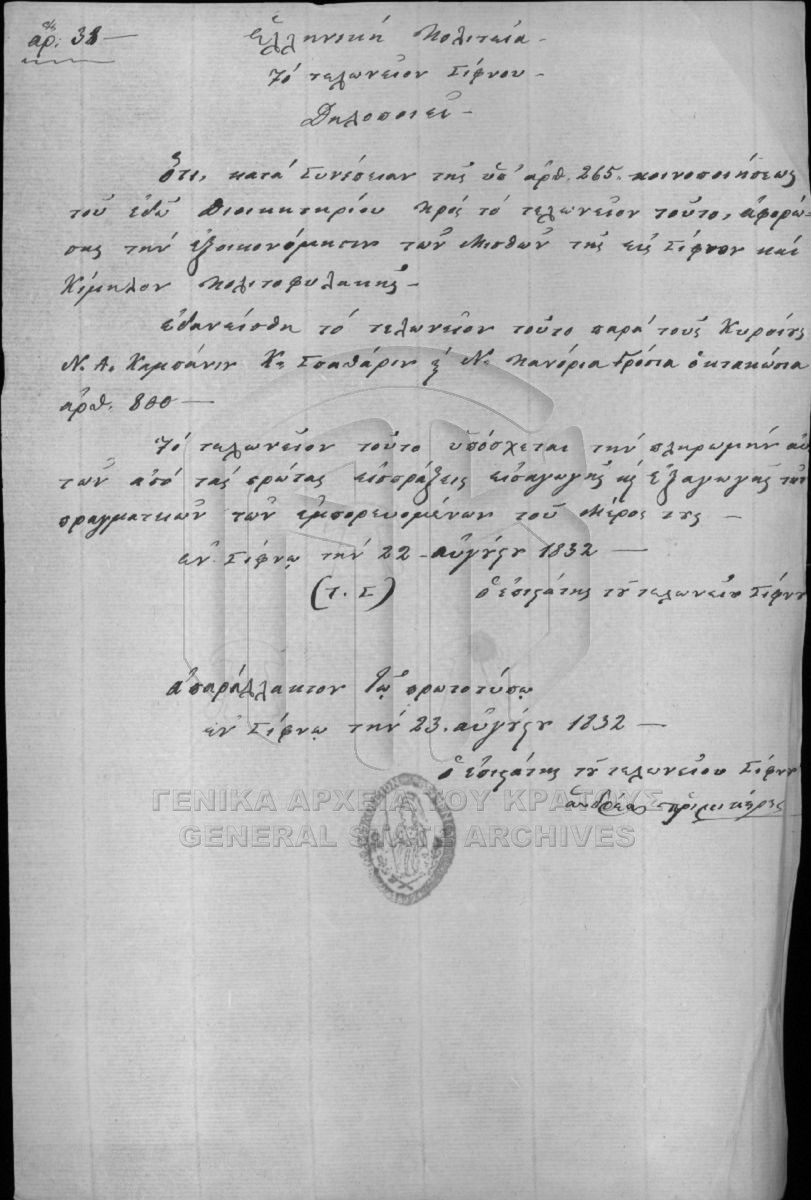 ἀρ: 38 —
Ἑλληνικὴ Πολιτεία -
Τὸ τελωνεῖον Σίφνου -
Δηλοποιεῖ -
Ὅτι, κατὰ Συνέπειαν τῆς ὑπ' ἀρθ. 265. κοινοποιήσεως
τοῦ ἐδῶ Διοικητηρίου πρὸς τὸ τελωνεῖον τοῦτο, ἀφορώ-
σης τὴν ἐξοικονόμησιν τῶν Μισθῶν τῆς εἰς Σίφνον καὶ
Κίμηλον πολιτοφυλακῆς -
ἐδανείσθη τὸ τελωνεῖον τοῦτο παρὰ τοὺς Κυρσίες
Ν. Α. Καμπάνιν Κ: Σπαθάριν ϗ Ν. Κανόρια Γρόσια ὀκτακόσια
ἀρθ. 800 —
Τὸ τελωνεῖον τοῦτο ὑπόσχεται τὴν πληρωμὴν αὐ
τῶν ἀπὸ τὰς πρώτας εἰσπράξεις εἰσαγωγῆς ϗ ἐξαγωγῆς τῶν
πραγματειῶν τῶν ἐμπορευομένων τοῦ Μέρος της —
ἐν Σίφνῳ τὴν 22 - αὐγύςου 1832 —
(Τ. Σ) ὁ ἐπιςάτης τοῦ τελωνείου Σίφνου
ἀπαράλλακτον τῷ πρωτοτύπῳ
ἐν Σίφνῳ τὴν 23. αὐγύςου 1832 —
ὁ ἐπιςάτης τοῦ τελωνείου Σίφνου
ἀνδρέας
ΓΕΝΙΚΑ ΑΡΧΕΙΑ ΤΟΥ ΚΡΑΤΟΥΣ
GENERAL STATE ARCHIVES